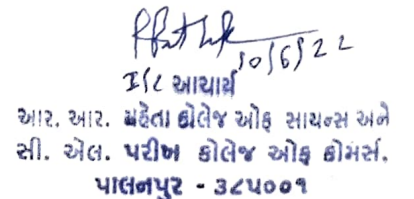 10/6/22
I/C આચાર્ય
આર. આર. મહેતા કોલેજ ઓફ સાયન્સ અને
સી. એલ. પરીખ કોલેજ ઓફ કોમર્સ.
પાલનપુર - ૩૮૫૦૦૧